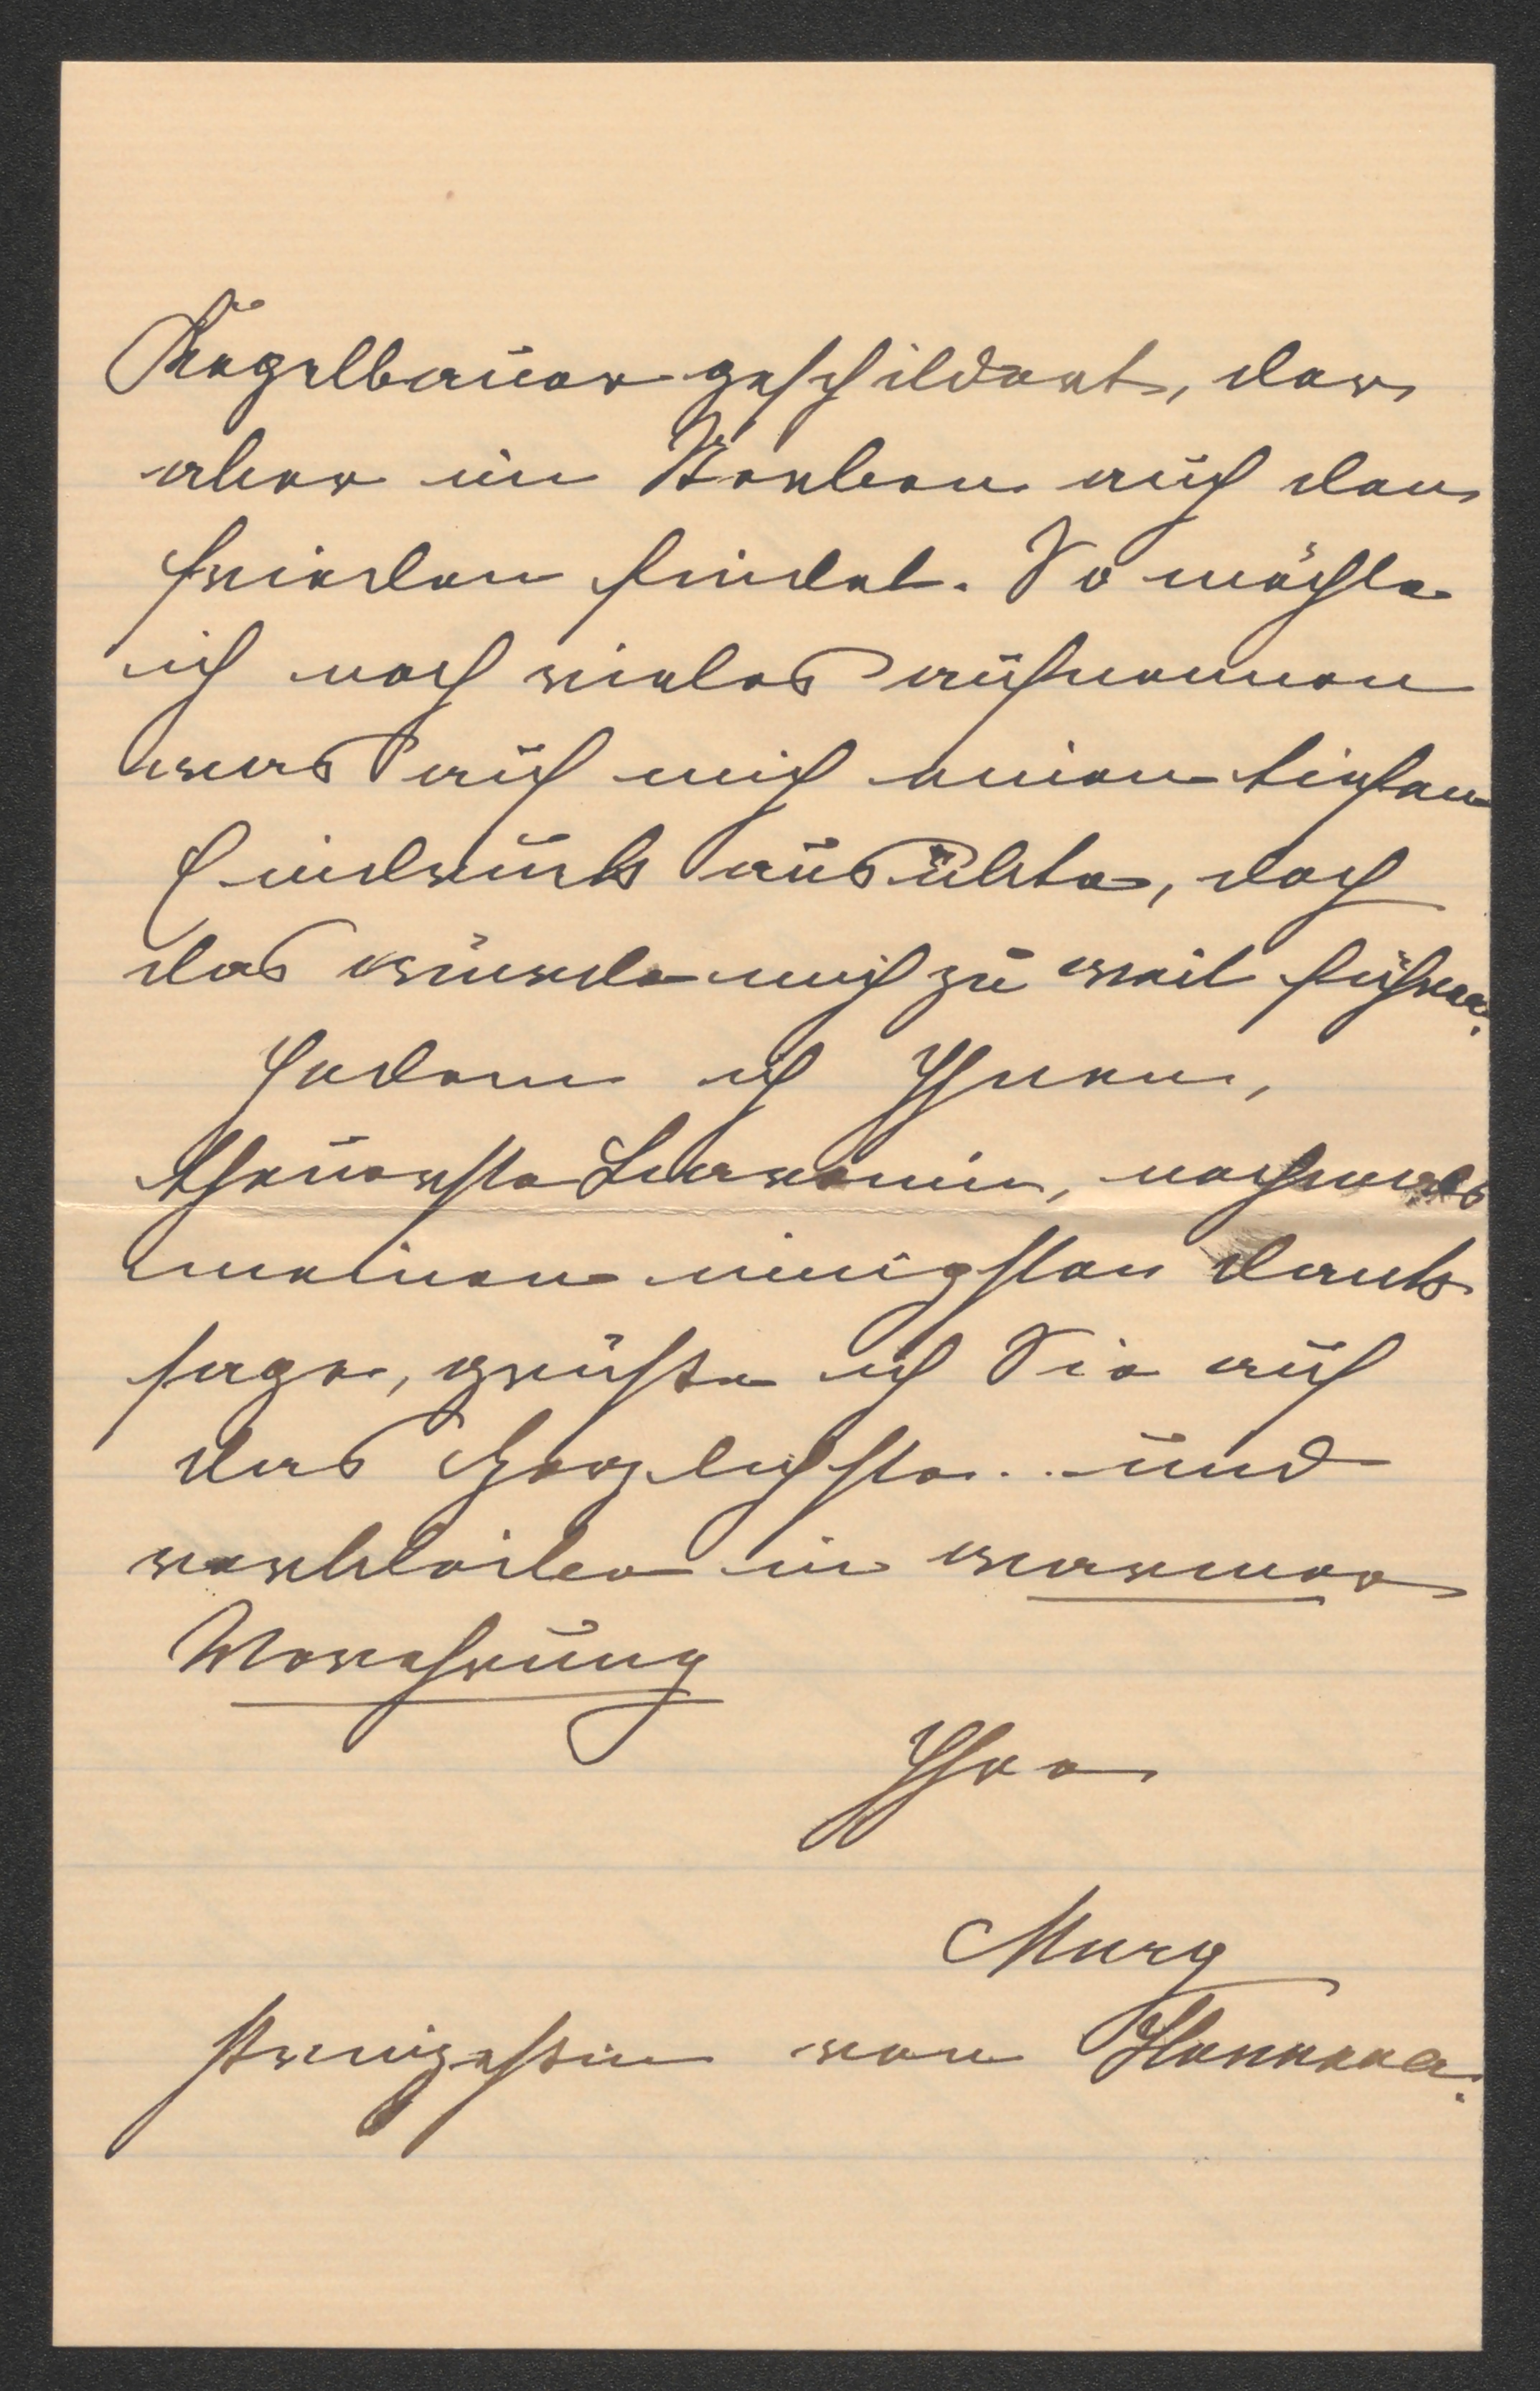 Kogelbauer geschildert, der
aber im Sterben auch den
Frieden findet. So möchte
ich noch vieles aufnennen
was auf mich einen tiefen
Eindruck ausübte, doch
das würde mich zu weit führen.
Indem ich Ihnen,
theuerste Baronin, nochmals
meinen innigsten Dank
sage, grüße ich Sie auf
das Herzlichste.. und
verbleibe in warmer
Verehrung
Ihre
Mary
Prinzessin von Hannover.